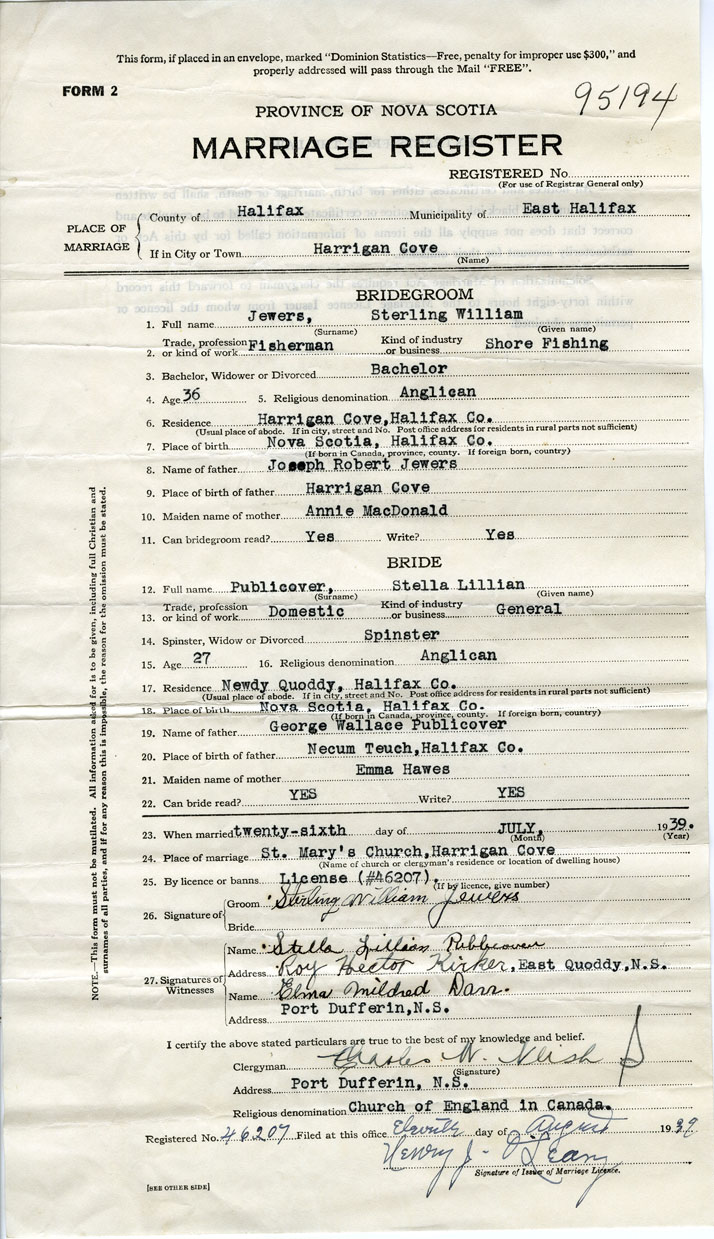 This form, if placed in an envelope, marked "Dominion Statistics—Free, penalty for improper use $300," and
properly addressed will pass through the Mail "FREE".
FORM 2
95194
PROVINCE OF NOVA SCOTIA
MARRIAGE REGISTER
REGISTERED No.
(For use of Registrar General only)
PLACE OF MARRIAGE
County of Halifax Municipality of East Halifax
If in City or Town Harrigan Cove
(Name)
BRIDEGROOM
1. Full name Jewers, Sterling William
(Surname) (Given name)
2. Trade, profession or kind of work Fisherman Kind of industry or business Shore Fishing
3. Bachelor, Widower or Divorced Bachelor
4. Age 36 5. Religious denomination Anglican
6. Residence Harrigan Cove,Halifax Co.
(Usual place of abode. If in city, street and No. Post office address for residents in rural parts not sufficient)
7. Place of birth Nova Scotia, Halifax Co.
(If born in Canada, province, county. If foreign born, country)
8. Name of father Joseph Robert Jewers
9. Place of birth of father Harrigan Cove
10. Maiden name of mother Annie MacDonald
11. Can bridegroom read? Yes Write? Yes
BRIDE
12. Full name Publicover, Stella Lillian
(Surname) (Given name)
13. Trade, profession or kind of work Domestic Kind of industry or business General
14. Spinster, Widow or Divorced Spinster
15. Age 27 16. Religious denomination Anglican
17. Residence Newdy Quoddy, Halifax Co.
(Usual place of abode. If in city, street and No. Post office address for residents in rural parts not sufficient)
18. Place of birth Nova Scotia, Halifax Co.
(If born in Canada, province, county. If foreign born, country)
19. Name of father George Wallace Publicover
20. Place of birth of father Necum Teuch,Halifax Co.
21. Maiden name of mother Emma Hawes
22. Can bride read? YES Write? YES
23. When married twenty-sixth day of JULY, 1939.
(Month) (Year)
24. Place of marriage St. Mary's Church,Harrigan Cove
(Name of church or clergyman's residence or location of dwelling house)
25. By licence or banns License (#46207).
(If by licence, give number)
26. Signature of
Groom Sterling William Jewers
Bride
27. Signatures of Witnesses
Name Stella Lillian Publicover
Address Roy Hector Kirker,East Quoddy,N.S.
Name Elma Mildred
Address Port Dufferin,N.S.
I certify the above stated particulars are true to the best of my knowledge and belief.
Clergyman Charles W.
(Signature)
Address Port Dufferin, N.S.
Religious denomination Church of England in Canada.
Registered No. 46207 Filed at this office Eleventh day of August 1939
Henry J. O'Leary
Signature of Issuer of Marriage Licence.
[SEE OTHER SIDE]
NOTE.—This form must not be mutilated. All information asked for is to be given, including full Christian and
surnames of all parties, and if for any reason this is impossible, the reason for the omission must be stated.